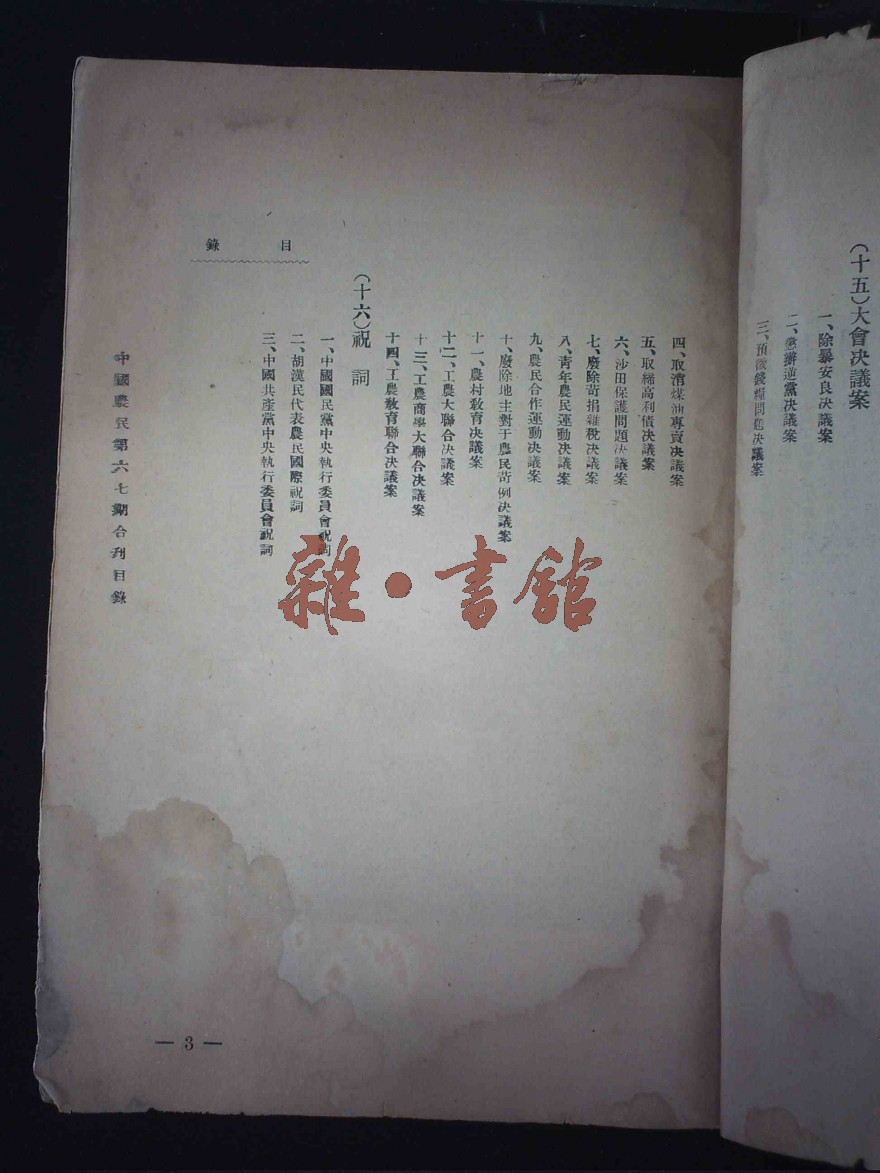 (十五)大會决議案
一、除暴安良决議案
二、懲辦逆黨决議案
三、預徵錢糧問題决議案
四、取消煤油專賣决議案
五、取締高利債决議案
六、沙田保護問題决議案
七、廢除苛捐雜稅决議案
八、靑年農民運動决議案
九、農民合作運動决議案
十、廢除地主對于農民苛例决議案
十一、農村敎育决議案
十二、工農大聯合决議案
十三、工農商學大聯合决議案
十四、工農敎育聯合决議案
(十六)祝詞
一、中國國民黨中央執行委員會祝詞
二、胡漢民代表農民國際祝詞
三、中國共產黨中央執行委員會祝詞
目錄
中國農民第六七期合刋目錄
— 3 —
雜·書館